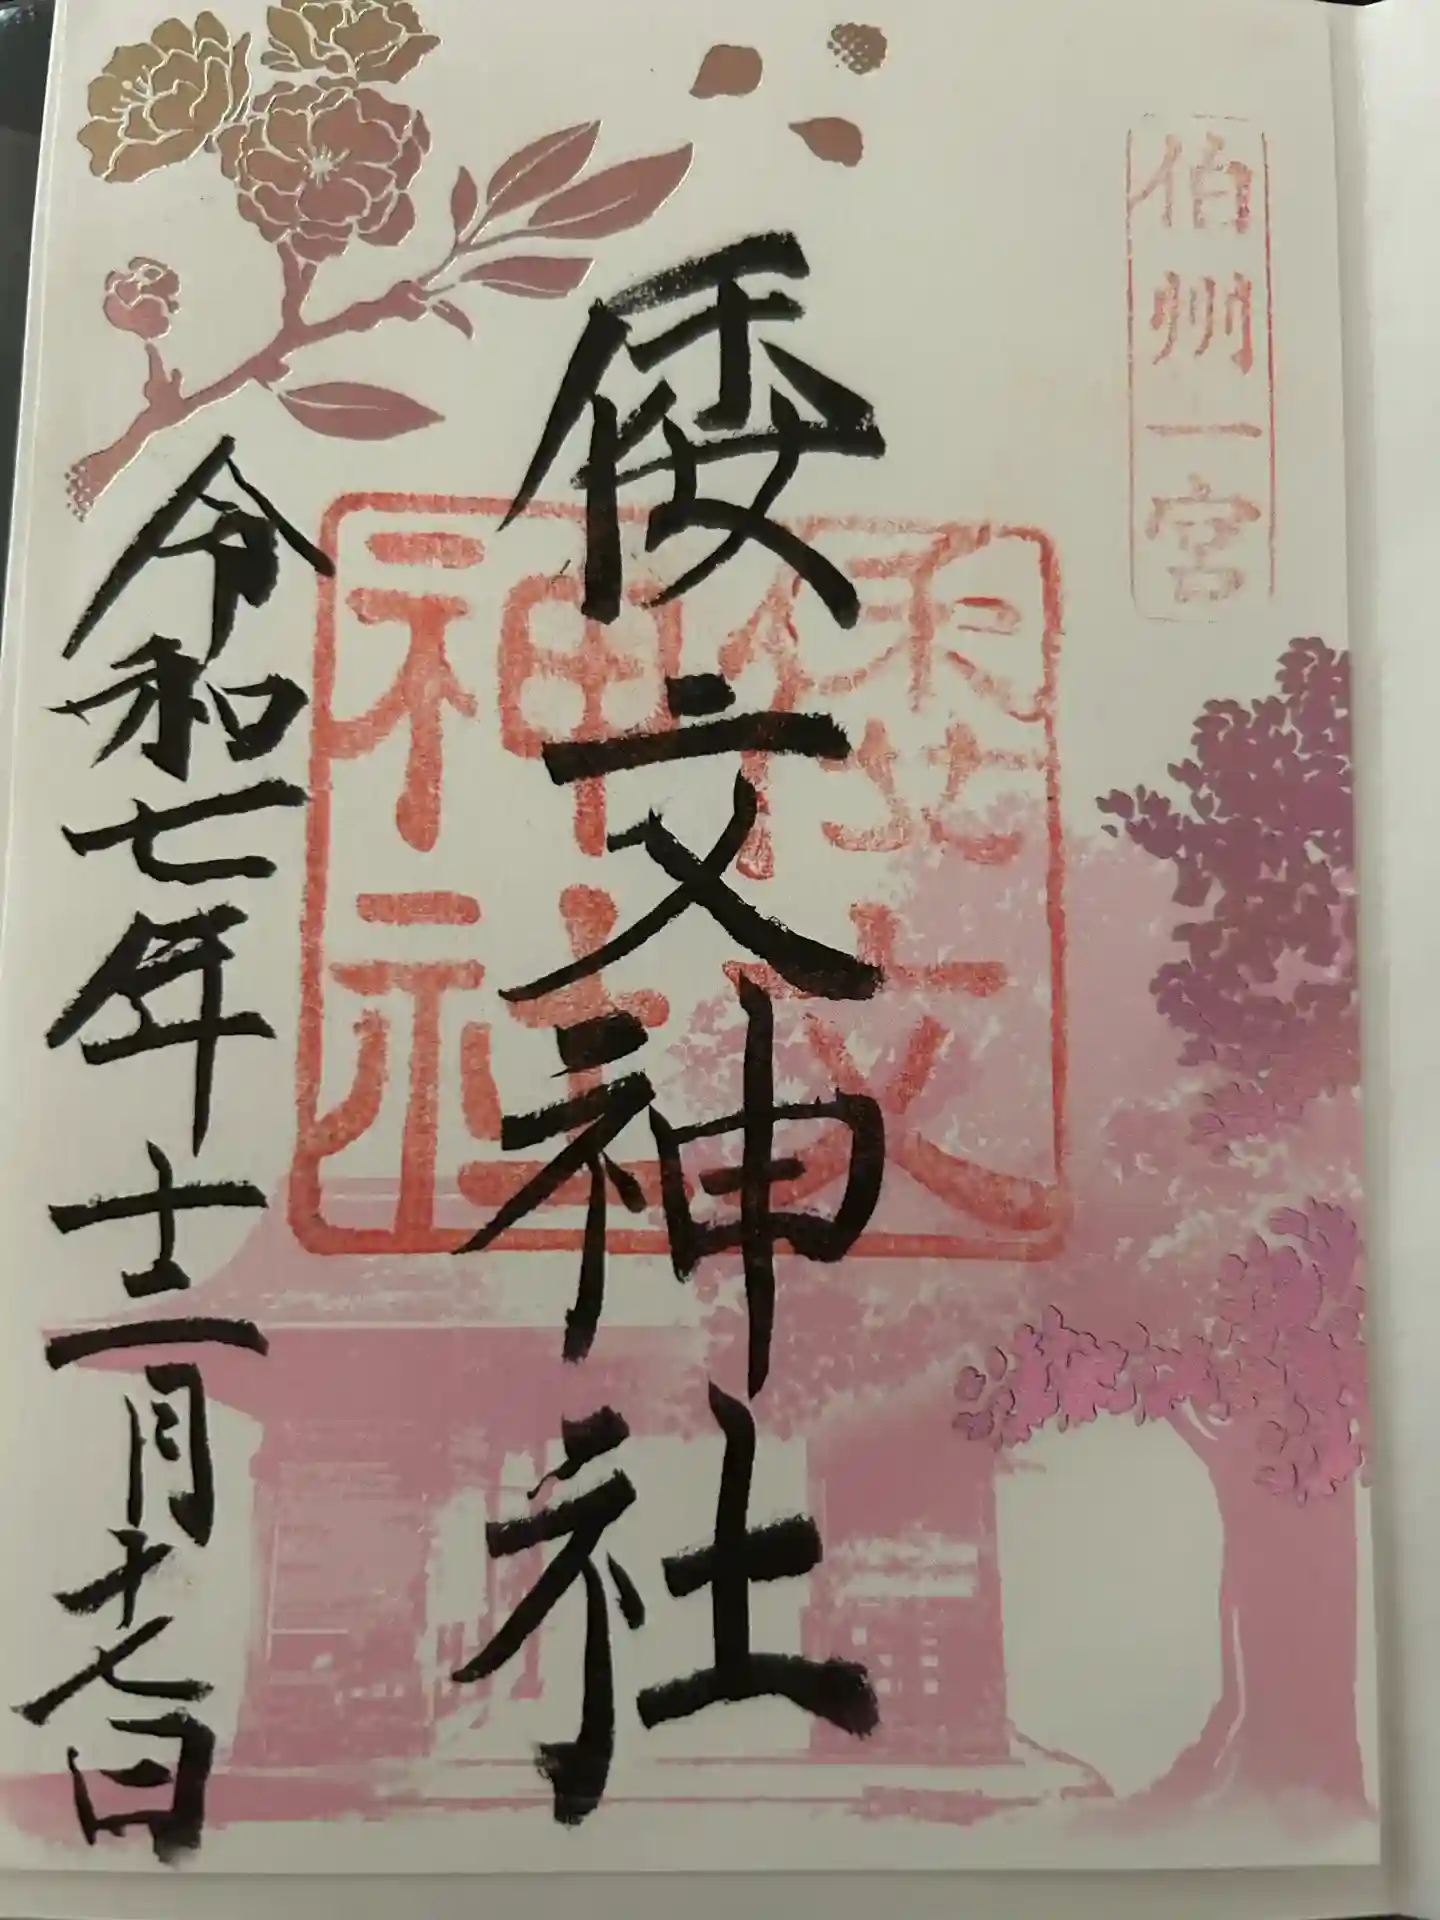 伯州一宮
倭文神社
倭文
神社
令和七年十二月十七日